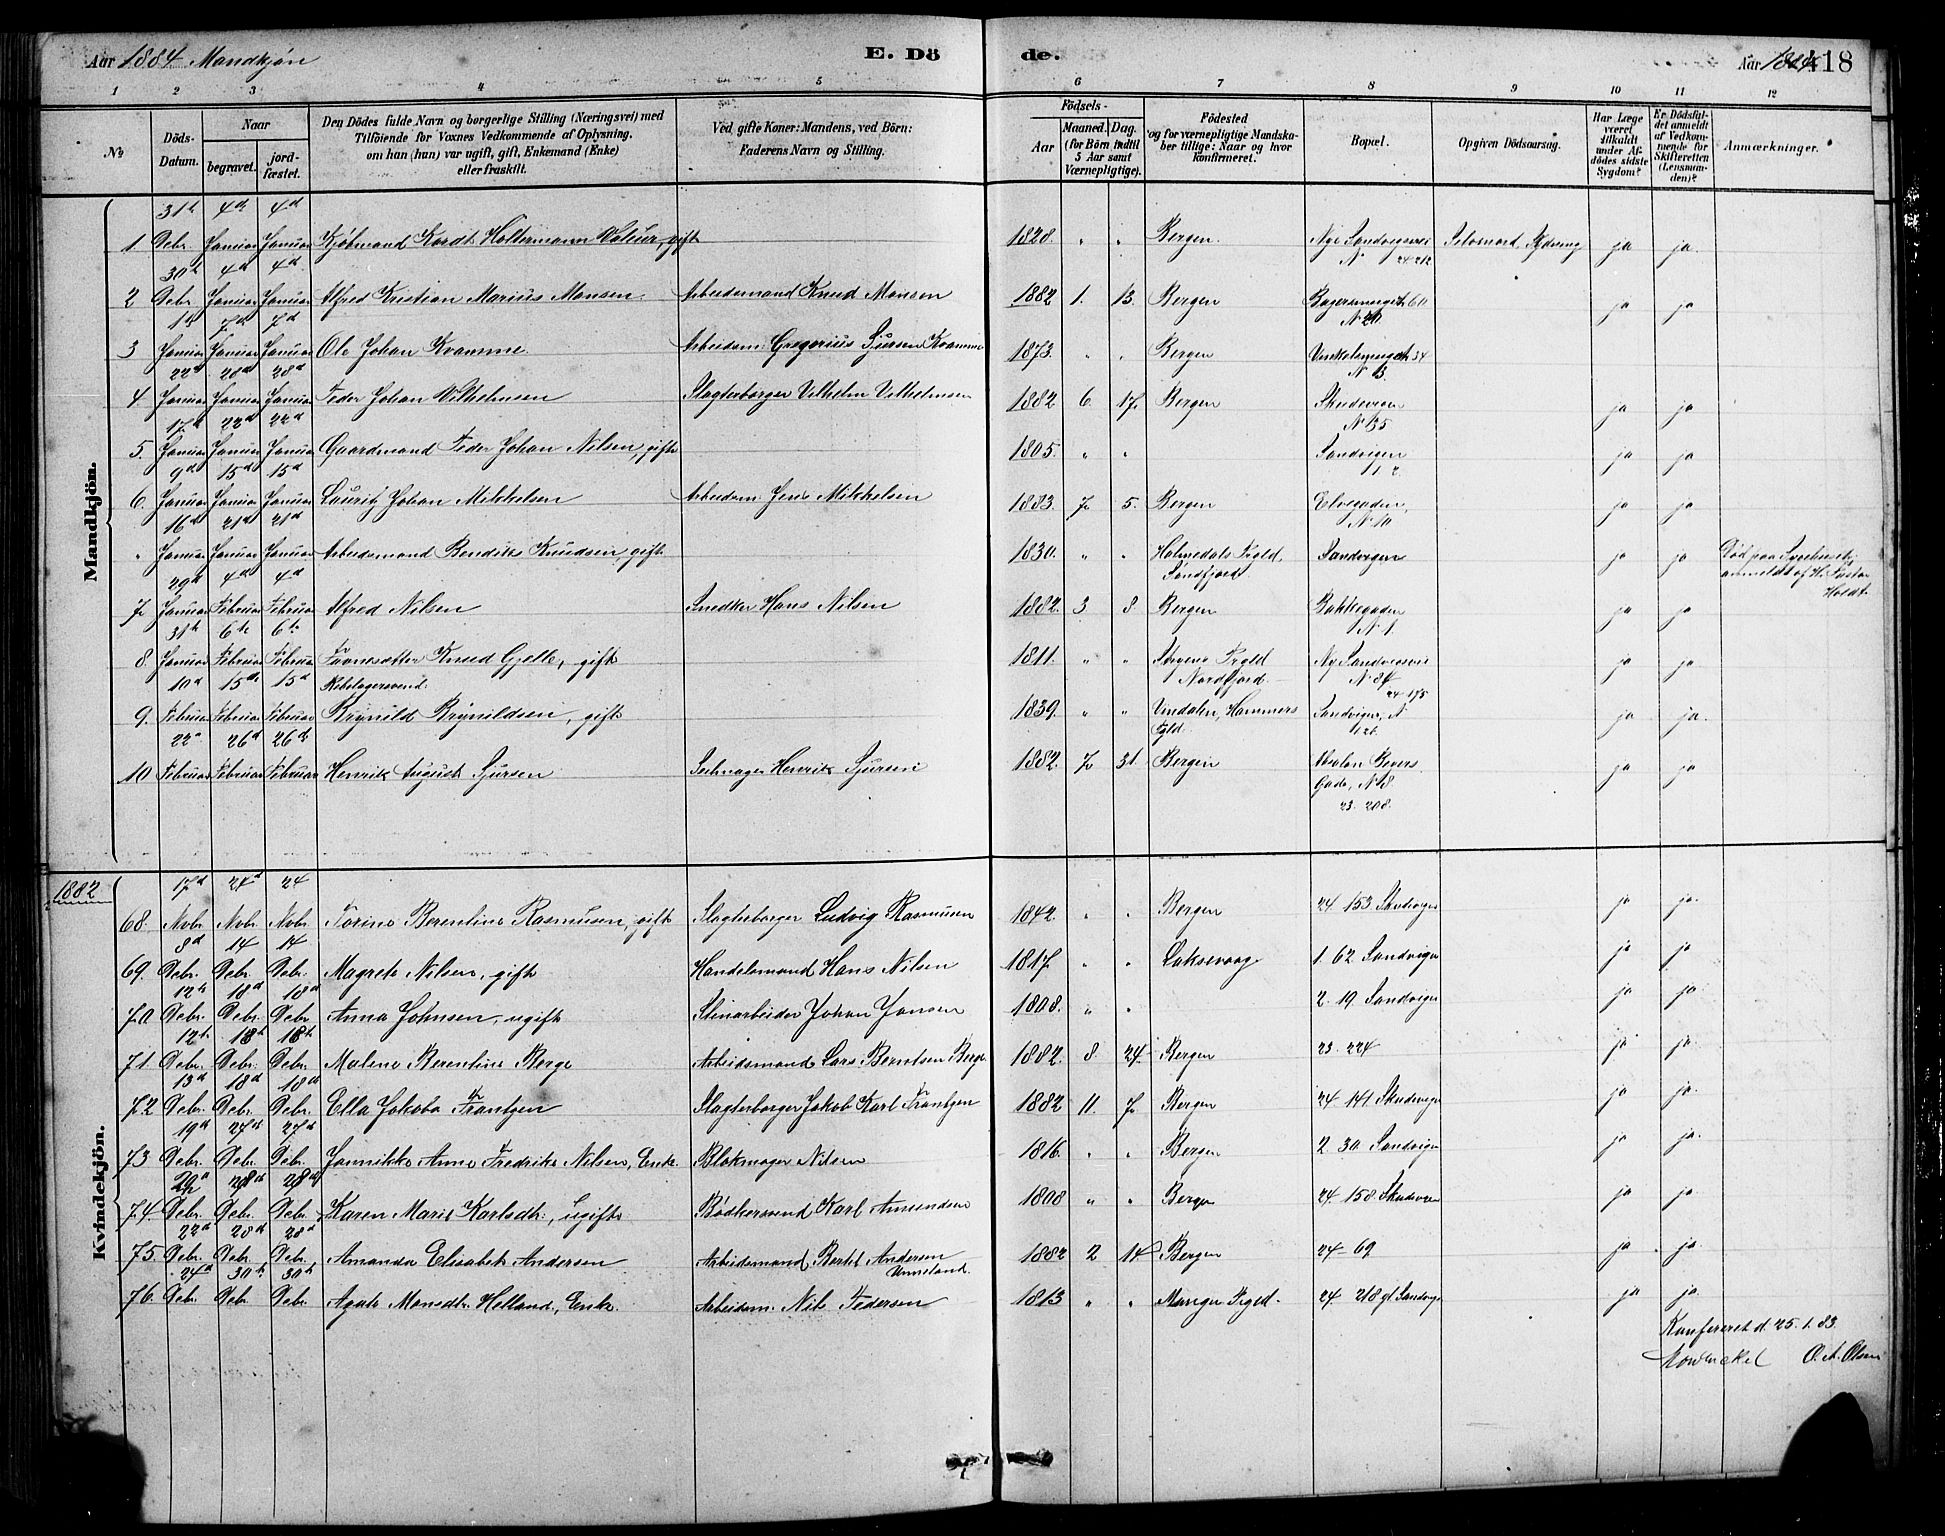 Aar 1884 Mandkjøn E. Dö de. Aar 1884 418
1 2 3 4 5 6 7 8 9 10 11 12
No Döds-Datum. Naar begravet. jord-fæstet. Den Dödes fulde Navn og borgerlige Stilling (Næringsvei) med Tilföiende for Voxnes Vedkommende af Oplysning, om han (hun) var ugift, gift, Enkemand (Enke) eller fraskilt. Ved gifte Koner: Mandens, ved Börn: Faderens Navn og Stilling. Födsels- Aar Maaned. Dag. (for Börn indtil 5 Aar samt Værnepligtige). Födested og for værnepligtige Mandska-ber tillige: Naar og hvor konfirmeret. Bopæl. Opgiven Dödsaarsag. Har Læge været tilkaldt under Af-dödes sidste Sygdom? Er Dödsfal-det anmeldt af Vedkom-mende for Skifteretten (Lensman-den)? Anmærkninger.
Mandkjön.
31te 4de 4de
1. Debr. Januar Januar Kjøbmand Kordt Holtermann Valeur, gift 1828. " " Bergen. Nye Sandvigsvei N 24-212 Selvmord ja ja.
30te 4de 4de
2 Debr. Januar Januar Alfred Kristian Marius Monsen Arbeidsmand Knud Monsen 1882 1. 13. Bergen ja ja
1ste 7de 7de
3 Januar Januar Januar Ole Johan Kvamme Arbeidsm. Gregorius Sjursen Kvamme 1873. " " Bergen ja ja
22de 28de 28de
4. Januar Januar Januar Peder Johan Vilhelmsen Slagterborger Vilhelm Vilhelmsen 1882 6. 17. Bergen Skudeviken ja ja
17de 22de 22de
5. Januar Januar Januar Gaardmand Peder Johan Nilsen, gift 1805. " " Sandvigen 1. 2. ja ja
9de 15de 15de
6. Januar Januar Januar Lauritz Johan Mikkelsen Arbeidsm. Jens Mikkelsen 1883. 7 5. Bergen Elvegaden, N. 10 ja ja
16de 21de 21de
" Januar Januar Januar Arbeidsmand Bendik Knudsen, gift 1830. " " Holmedals Prgld. Søndfjord. Sandvigen ja ja Død paa anmeldt af H. Pastor Holdt.
29de 4de 4de
7 Januar Februar Februar Alfred Nilsen Snedker Hans Nilsen 1882. 3 8 Bergen Bakkegaden N. 1. ja ja
31te 6te 6te
8. Januar Februar Februar Favnesætter Knud Gjelle, gift 1811. " " Prgld Nordfjord Ny Sandvigsvei ja ja
10de 15de 15de Rebslagersvend.
9. Februar Februar Februar Brynild Brynildsen, gift 1839. " " Unndalen, Hammers Prgld. 24-175 Sandvigen, N 126 ja ja.
22de 26de 26de
10 Februar Februar Februar Henrik August Sjursen Henrik Sjursen 1882. 7 31. Bergen Absalon Beyers Gade, N 18. 23. 208. ja ja
1882. Kvindekjön.
17de 24de 24
68. Nvbr. Nvbr. Nvbr. Torine Berentine Rasmusen, gift Slagterborger Ludvig Rasmusen 1842. " " Bergen 24. 153 Skudevigen ja ja.
8de 14 14
69. Debr. Debr. Debr. Magrete Nilsen, gift Handelsmand Hans Nilsen 1817 " " Laksevaag 1. 62 Sandvigen ja ja
12te 18de 18de
70. Debr. Debr. Debr. Anna Johnsen, ugift Stenarbeider Johan Jansen 1808. " " 2. 19. Sandvigen ja ja
12te 18de 18de
71. Debr. Debr. Debr. Malene Berentine Berge Arbeidsmand Lars Berntsen Berge 1882. 8. 24. Bergen 23. 224 ja ja
13de 18de 18de
72 Debr. Debr. Debr. Ella Jakoba Frantzen Slagterborger Jakob Karl Frantzen 1882 11. 7. Bergen 24. 141 Skudevigen ja ja.
19de 27de 27de
73 Debr. Debr. Debr. Jannikke Anne Fredrike Nilsen, Enke. Blokmager Nilsen 1816. " " Bergen 2. 30. Sandvigen ja ja.
28de 28de
74. Debr. Debr. Debr. Karen Marie Karlsdtr., ugift Bødkersvend Karl Amundsen 1808 " " Bergen 24. 158. Skudeviken ja ja.
22de 28de 28de
75. Debr. Debr. Debr. Amanda Elisabeth Andersen Arbeidsmand Bertel Andersen Unneland. 1882 2 14. Bergen 24-69 ja ja.
24de 30te 30te
76. Debr. Debr. Debr. Agate Monsdtr. Helland, Enke. Arbeidsm. Nils Pedersen 1813 " " Manger Prgld. 24. 218 gl. Sandvigen ja ja.
Konfereret d. 25. 1. 83.
Mowinckel O. A. Olsen